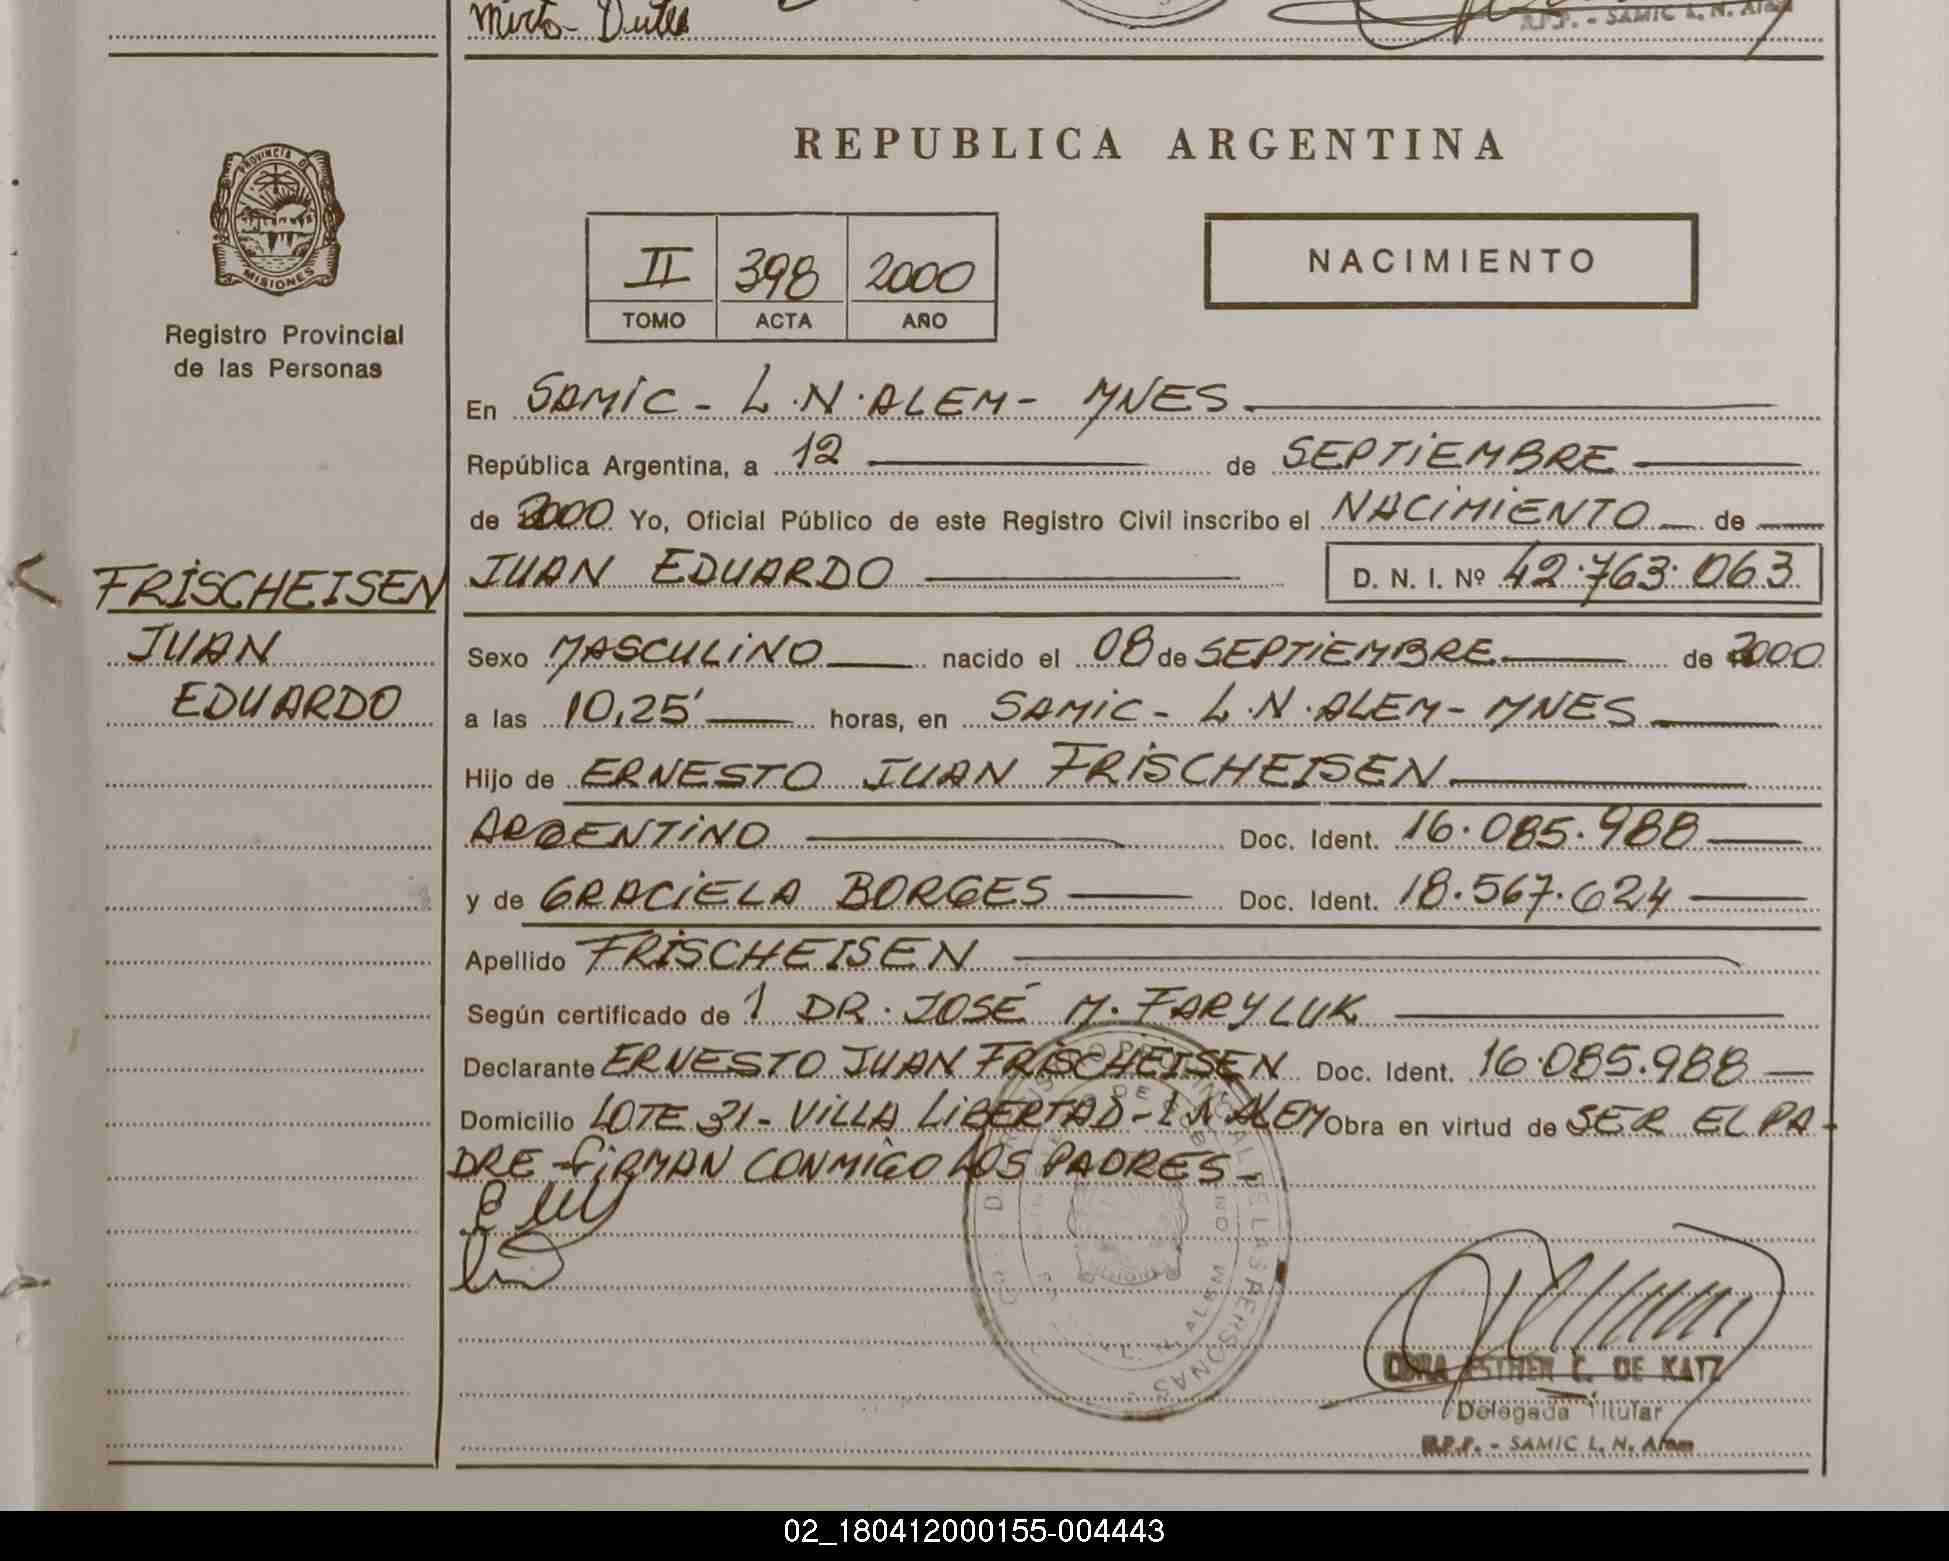 Mirta Dutra
R.P.P. - SAMIC L. N. Alem
PROVINCIA DE
MISIONES
Registro Provincial
de las Personas
REPUBLICA ARGENTINA
II 398 2000
TOMO ACTA AÑO
NACIMIENTO
En SAMIC - L.N.ALEM - MNES
República Argentina, a 12 de SEPTIEMBRE
de 2000 Yo, Oficial Público de este Registro Civil inscribo el NACIMIENTO de
JUAN EDUARDO D. N. I. Nº 42.763.063
FRISCHEISEN
JUAN
EDUARDO
Sexo MASCULINO nacido el 08 de SEPTIEMBRE de 2000
a las 10,25' horas, en SAMIC - L.N.ALEM - MNES
Hijo de ERNESTO JUAN FRISCHEISEN
ARGENTINO Doc. Ident. 16.085.988
y de GRACIELA BORGES Doc. Ident. 18.567.624
Apellido FRISCHEISEN
Según certificado de 1 DR. JOSÉ M. FARYLUK
Declarante ERNESTO JUAN FRISCHEISEN Doc. Ident. 16.085.988
Domicilio LOTE 31 - VILLA LIBERTAD - L N ALEM Obra en virtud de SER EL PA-
DRE - FIRMAN CONMIGO LOS PADRES -
ESTHER C. DE KATZ
Delegada Titular
R.P.P. - SAMIC L. N. Alem
02_180412000155-004443